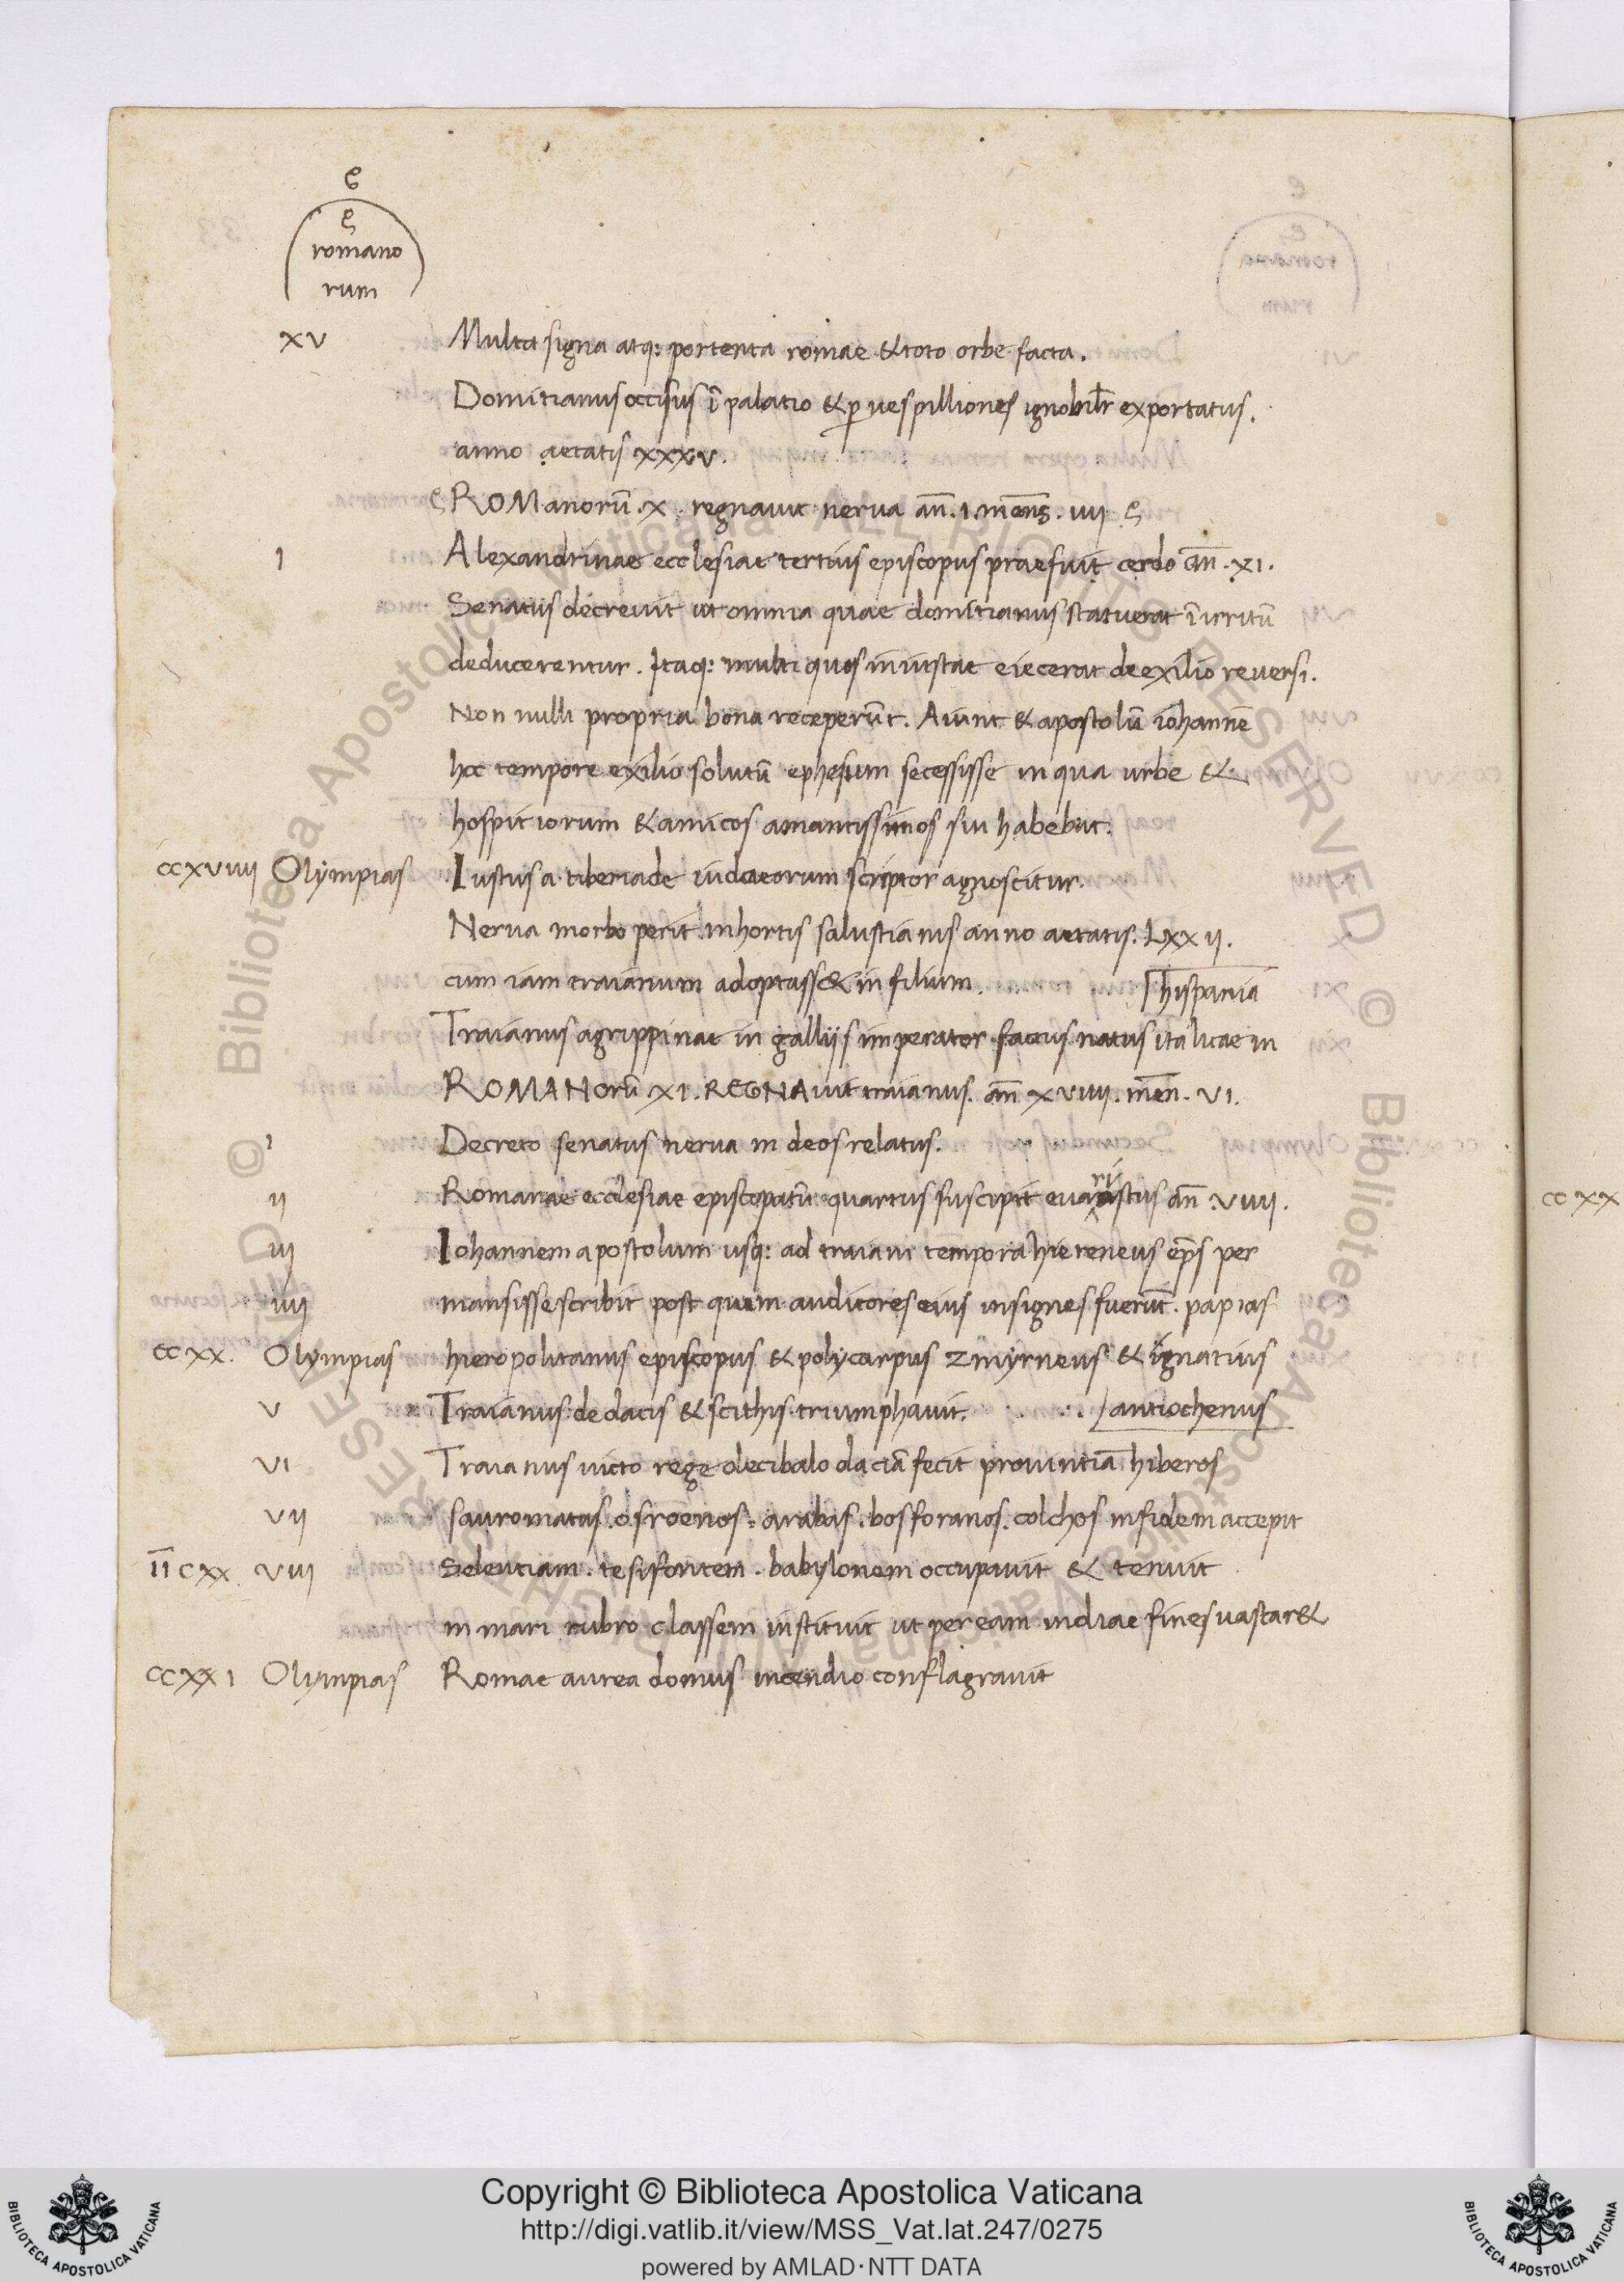 romano
rum
xv Multa signa atq: portenta romae & toto orbe facta.
Domitianus occisus ī palatio & ꝑ uespilliones ignobilr̄ exportatus.
anno aetatis xxxv.
ROManorū .x. regnauit nerua an̄. i. mens̄. iiii
i Alexandrinae ecclesiae tertius episcopus praefuit cerdo an̄. xi.
Senatus decreuit ut omnia quae domitianus statuerat ī irritū
deducerentur. Itaq: multi quos iniustae eiecerat de exilio reuersi.
Non nulli propria bona receperūt. Aiunt & apostolū iohannē
hoc tempore exilio solutū ephesum secessisse in qua urbe &
hospitiorum & amicos amantissimos sui habebat.
ccxviiii Olympias Iustus a tiberiade iudaeorum scriptor agnoscitur.
Nerua morbo perit in hortis salustianis anno aetatis. Lxxii.
cum iam traianum adoptass& in filium. hispania
Traianus agrippinae in galliis imperator factus natus italicae in
ROMANorū xi. REGNAuit traianus. an̄ xviiii. men̄. vi.
i Decreto senatus nerua in deos relatus.
ii Romanae ecclesiae episcopatū quartus suscipit euaristus an̄. viiii.
iii Iohannem apostolum usq: ad traiani tempora hiereneus ep̄s per
iiii mansisse scribit post quem auditores eius insignes fuerūt. papias
ccxx. Olympias hieropolitanus episcopus & polycarpus zmyrneus & ignatius
v Traianus de dacis & scithis triumphauit. antiochenus
vi Traianus uicto rege decibalo daciā fecit prouintiā hiberos
vii sauromatas. osroenos. arabas. bosforanos. colchos in fidem accepit
īīcxx. viii Seleuciam. tesifontem. babylonem occupauit & tenuit
in mari rubro classem instituit ut per eam indiae fines uastar&
ccxxi Olympias Romae aurea domus incendio conflagrauit
ccxx
© Biblioteca Apostolica Vaticana ALL RIGHTS RESERVED © Biblioteca Apostolica Vaticana ALL RIGHTS RESERVED
Copyright © Biblioteca Apostolica Vaticana
http://digi.vatlib.it/view/MSS_Vat.lat.247/0275
powered by AMLAD·NTT DATA
BIBLIOTECA APOSTOLICA VATICANA
BIBLIOTECA APOSTOLICA VATICANA